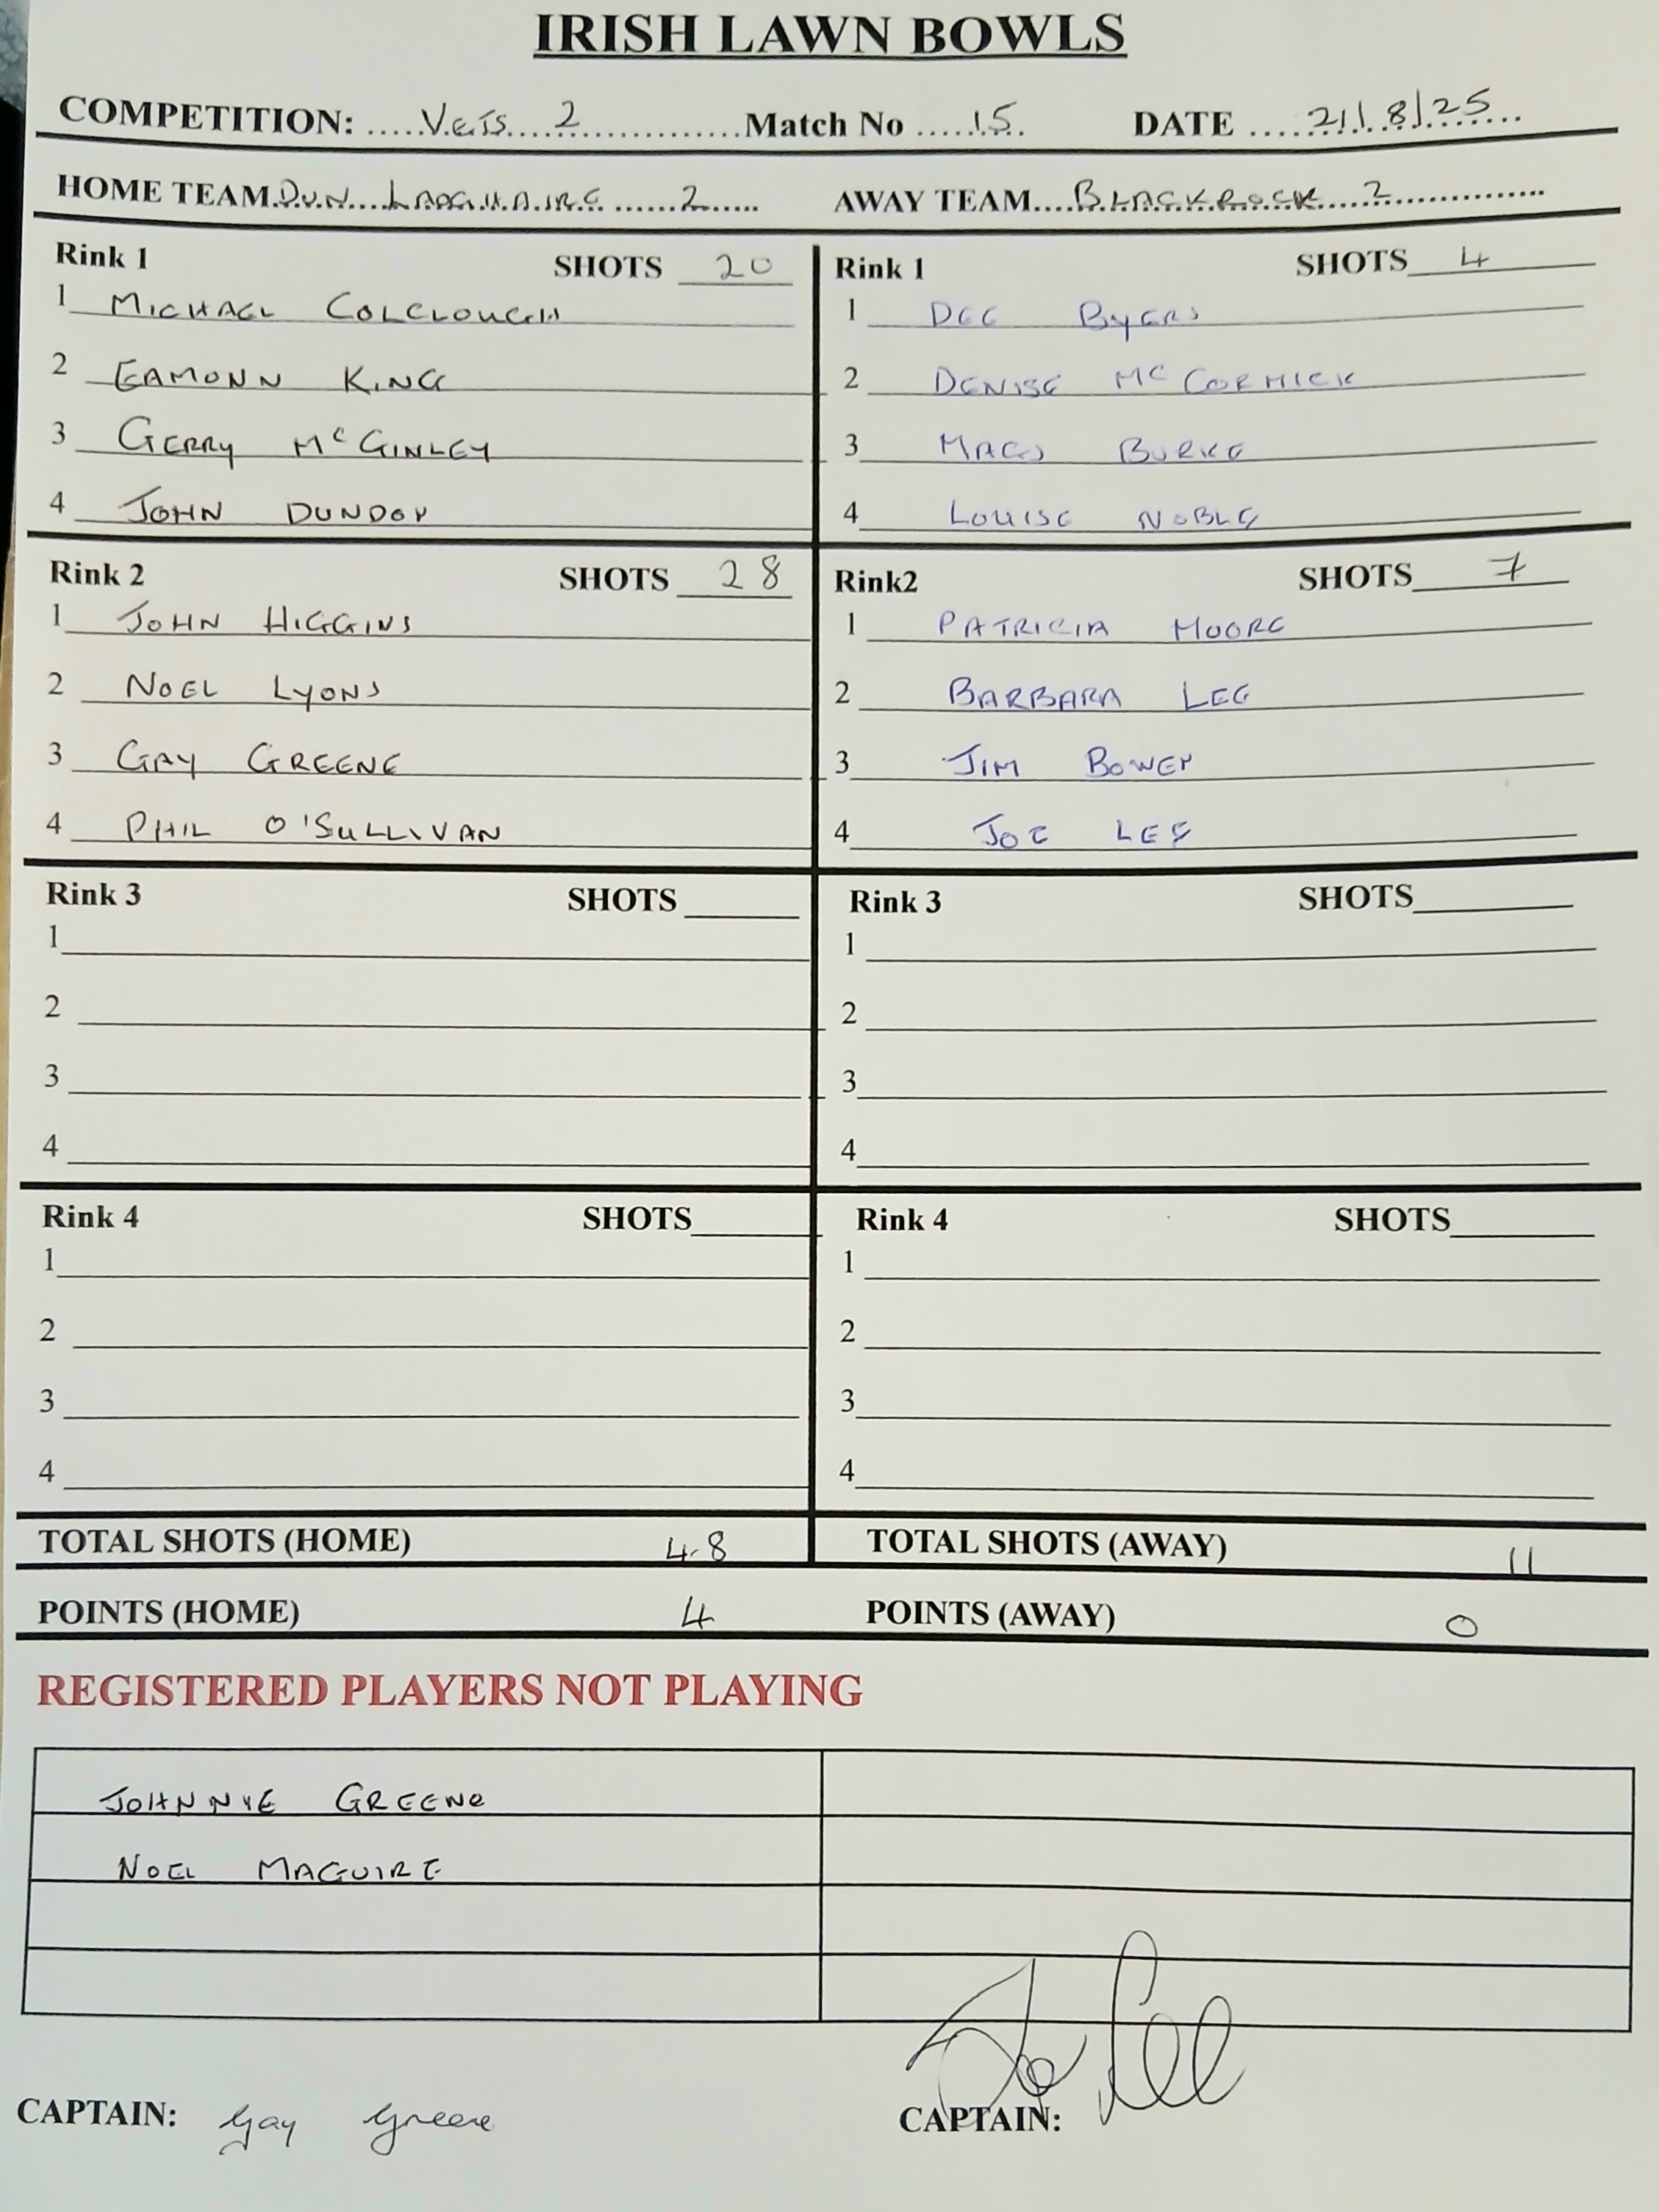 IRISH LAWN BOWLS
COMPETITION: Vets 2 Match No 15 DATE 21/8/25
HOME TEAM DUN LAOGHAIRE 2 AWAY TEAM BLACKROCK 2
Rink 1 SHOTS 20
1 MICHAEL COLCLOUGH
2 EAMONN KING
3 GERRY McGINLEY
4 JOHN DUNDON
Rink 1 SHOTS 4
1 DEE BYERS
2 DENISE McCORMICK
3 MAGS BURKE
4 LOUISE NOBLE
Rink 2 SHOTS 28
1 JOHN HIGGINS
2 NOEL LYONS
3 GAY GREENE
4 PHIL O'SULLIVAN
Rink2 SHOTS 7
1 PATRICIA MOORE
2 BARBARA LEE
3 JIM BOWEN
4 JOE LEE
Rink 3 SHOTS
1
2
3
4
Rink 3 SHOTS
1
2
3
4
Rink 4 SHOTS
1
2
3
4
Rink 4 SHOTS
1
2
3
4
TOTAL SHOTS (HOME) 48 TOTAL SHOTS (AWAY) 11
POINTS (HOME) 4 POINTS (AWAY) 0
REGISTERED PLAYERS NOT PLAYING
JOHNNIE GREENE
NOEL MAGUIRE
CAPTAIN: Gay Greene
CAPTAIN: Joe Lee